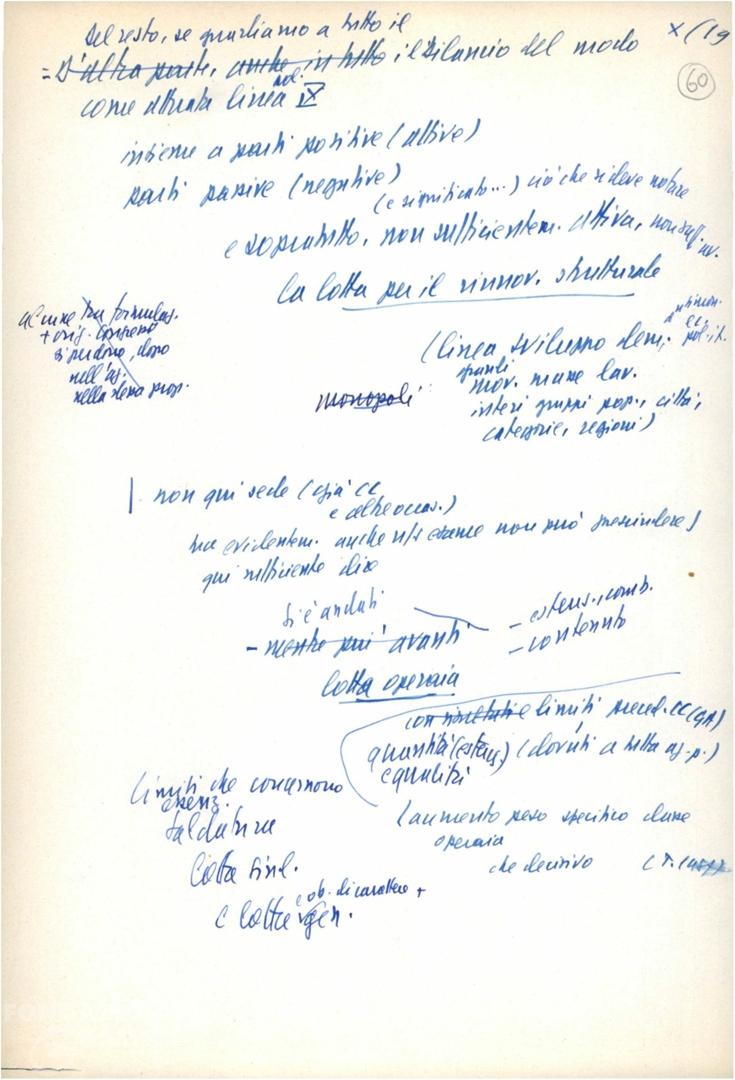 Del resto, se guardiamo a tutto il
= D'altra parte, anche in tutto il bilancio del modo
x/(19
60
come attuata linea pol. IX
insieme a parti positive (attive)
parti passive (negative)
(e significato...) ciò che si deve notare
e sopratutto, non sufficientem. attiva, non suff. av.
la lotta per il rinnov. strutturale
alcune tra formulaz.
+ orig. Congresso
si perdono, dopo
nell'az.
nella stessa prop.
(linea sviluppo dem.
ec.
pol. it.
grandi
mov. masse lav.
monopoli
interi gruppi pop., città,
categorie, regioni)
non qui sede (già CC
e altre occas.)
ma evidentem. anche n/s esame non può prescindere)
qui sufficiente dire
si è andati
- mentre più avanti
- estens., comb.
- contenuto
lotta operaia
con risultati e limiti preced. CC (GA)
quantità (estens.) (dovuti a tutta az. p.)
e qualità
limiti che concernono
essenz.
saldatura
(aumento peso specifico classe
operaia
lotta sind.
che decisivo
e ob. di carattere +
e lotta gen.